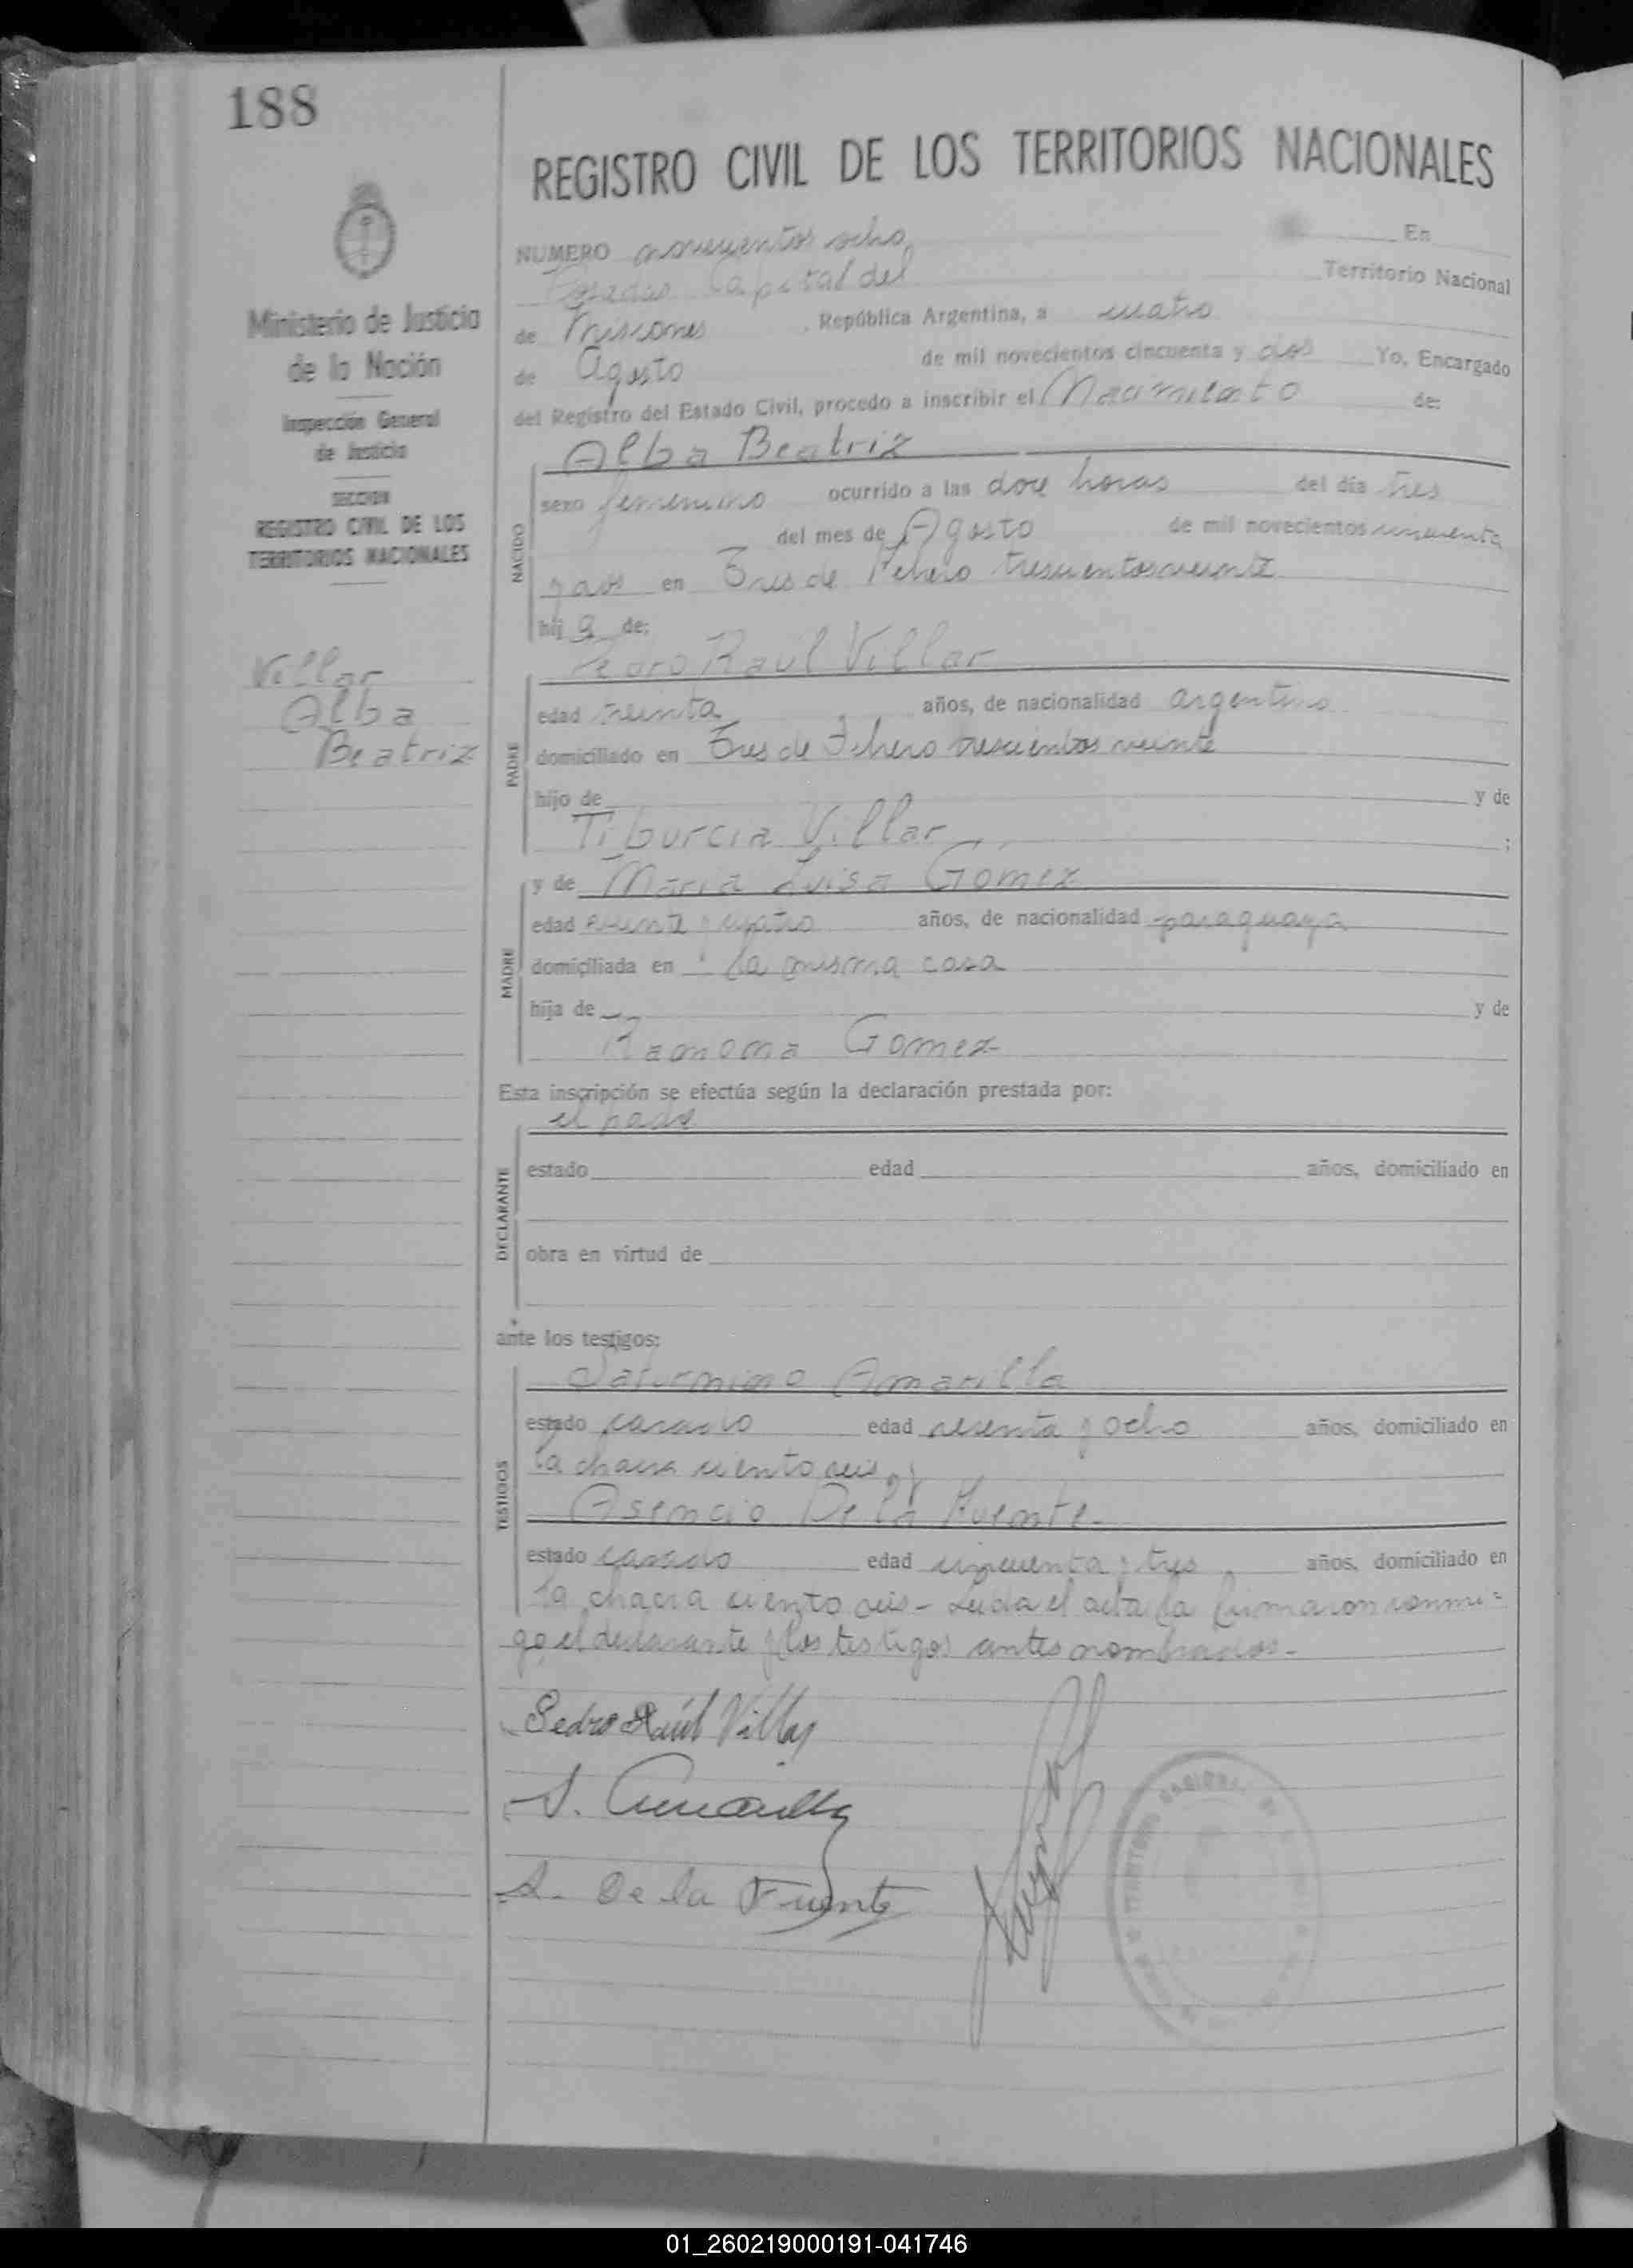 188
REGISTRO CIVIL DE LOS TERRITORIOS NACIONALES
NUMERO novecientos ocho En
Posadas Capital del Territorio Nacional
de Misiones República Argentina, a cuatro
de Agosto de mil novecientos cincuenta y dos Yo, Encargado
del Registro del Estado Civil, procedo a inscribir el Nacimiento de:
Ministerio de Justicia
de la Nación
Inspección General
de Justicia
SECCION
REGISTRO CIVIL DE LOS
TERRITORIOS NACIONALES
Villar
Alba
Beatriz
Alba Beatriz
NACIDO
sexo femenino ocurrido a las doce horas del día tres
del mes de Agosto de mil novecientos cincuenta
y dos en Tres de Febrero trescientos veinte
hij a de:
Pedro Raúl Villar
PADRE
edad treinta años, de nacionalidad argentino
domiciliado en Tres de Febrero trescientos veinte
hijo de y de
Tiburcia Villar ;
y de María Luisa Gomez
MADRE
edad veinte y cuatro años, de nacionalidad paraguaya
domiciliada en la misma casa
hija de y de
Ramona Gomez
Esta inscripción se efectúa según la declaración prestada por:
el padre
DECLARANTE
estado edad años, domiciliado en
obra en virtud de
ante los testigos:
Saturnino Amarilla
TESTIGOS
estado casado edad sesenta y ocho años, domiciliado en
la chacra ciento seis y
Asencio De la Fuente-
estado casado edad cincuenta y tres años, domiciliado en
la chacra ciento seis - Leida el acta la firmaron conmi-
go, el declarante y los testigos antes nombrados.-
Pedro Raúl Villar
S. Amarilla
A. De la Fuente
TERRITORIO NACIONAL DE
01_260219000191-041746